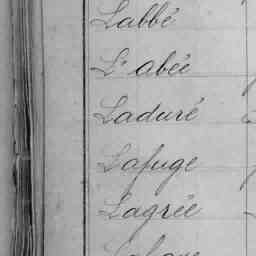 Labbé
L'abée
Laduré
Lafuge
Lagrée